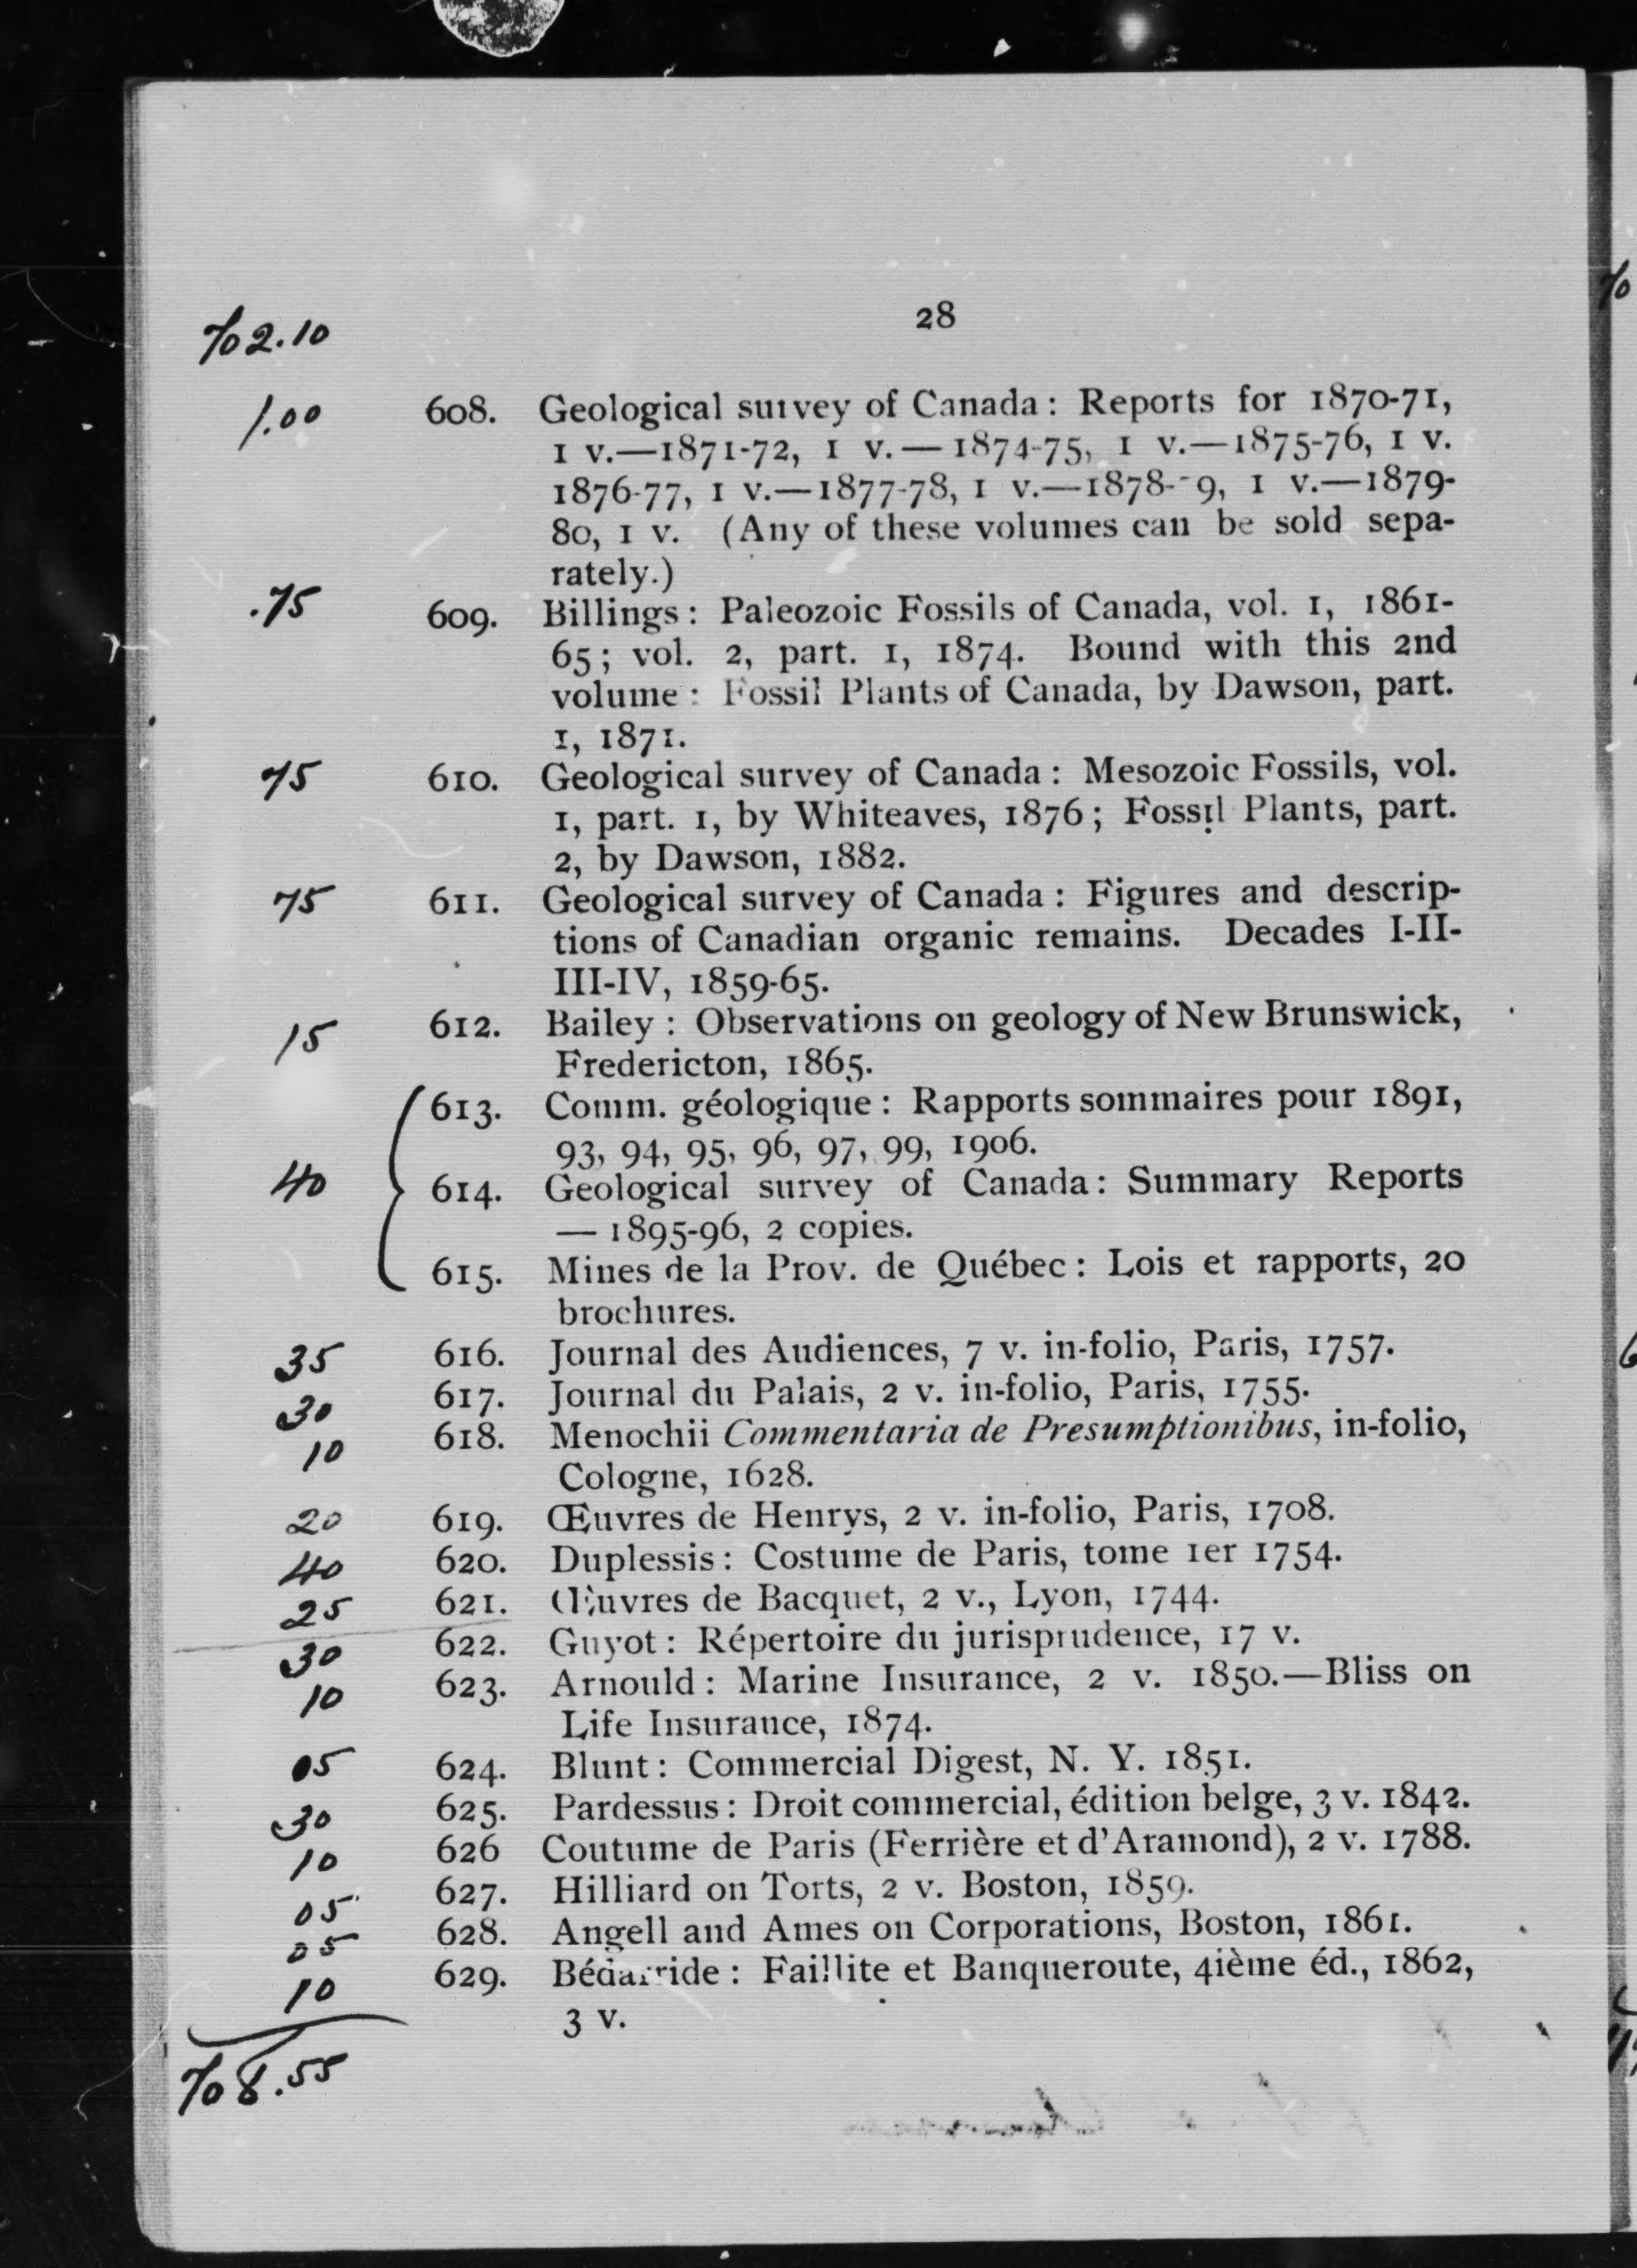 28
702.10
1.00 608. Geological survey of Canada: Reports for 1870-71,
1 v.—1871-72, 1 v.—1874-75, 1 v.—1875-76, 1 v.
1876-77, 1 v.—1877-78, 1 v.—1878- 9, 1 v.—1879-
80, 1 v. (Any of these volumes can be sold sepa-
rately.)
.75 609. Billings: Paleozoic Fossils of Canada, vol. 1, 1861-
65; vol. 2, part. 1, 1874. Bound with this 2nd
volume: Fossil Plants of Canada, by Dawson, part.
1, 1871.
75 610. Geological survey of Canada: Mesozoic Fossils, vol.
1, part. 1, by Whiteaves, 1876; Fossil Plants, part.
2, by Dawson, 1882.
75 611. Geological survey of Canada: Figures and descrip-
tions of Canadian organic remains. Decades I-II-
III-IV, 1859-65.
15 612. Bailey: Observations on geology of New Brunswick,
Fredericton, 1865.
613. Comm. géologique: Rapports sommaires pour 1891,
93, 94, 95, 96, 97, 99, 1906.
40 614. Geological survey of Canada: Summary Reports
— 1895-96, 2 copies.
615. Mines de la Prov. de Québec: Lois et rapports, 20
brochures.
35 616. Journal des Audiences, 7 v. in-folio, Paris, 1757.
30 617. Journal du Palais, 2 v. in-folio, Paris, 1755.
10 618. Menochii Commentaria de Presumptionibus, in-folio,
Cologne, 1628.
20 619. Œuvres de Henrys, 2 v. in-folio, Paris, 1708.
40 620. Duplessis: Costume de Paris, tome 1er 1754.
25 621. Œuvres de Bacquet, 2 v., Lyon, 1744.
30 622. Guyot: Répertoire du jurisprudence, 17 v.
10 623. Arnould: Marine Insurance, 2 v. 1850.—Bliss on
Life Insurance, 1874.
05 624. Blunt: Commercial Digest, N. Y. 1851.
30 625. Pardessus: Droit commercial, édition belge, 3 v. 1842.
10 626 Coutume de Paris (Ferrière et d'Aramond), 2 v. 1788.
05 627. Hilliard on Torts, 2 v. Boston, 1859.
05 628. Angell and Ames on Corporations, Boston, 1861.
10 629. Bédarride: Faillite et Banqueroute, 4ième éd., 1862,
3 v.
708.55